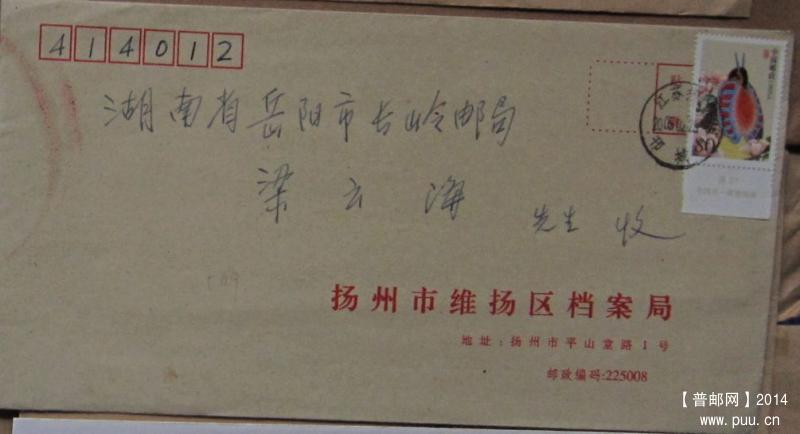 414012
湖南省岳阳市长岭邮局
梁云海 先生 收
贴
80
扬州市维扬区档案局
地址:扬州市平山堂路1号
邮政编码:225008
【普邮网】2014
www.puu.cn